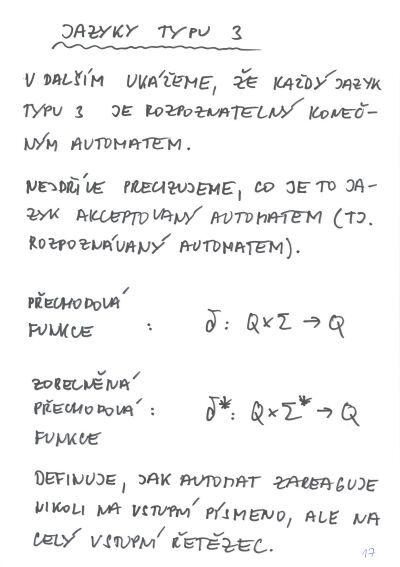 JAZYKY TYPU 3
V DALŠÍM UKÁŽEME, ŽE KAŽDÝ JAZYK
TYPU 3 JE ROZPOZNATELNÝ KONEČ-
NÝM AUTOMATEM.
NEJDŘÍVE PRECIZUJEME, CO JE TO JA-
ZYK AKCEPTOVANÝ AUTOMATEM (TJ.
ROZPOZNÁVANÝ AUTOMATEM).
PŘECHODOVÁ
FUNKCE : δ: Q×Σ → Q
ZOBECNĚNÁ
PŘECHODOVÁ : δ*: Q×Σ* → Q
FUNKCE
DEFINUJE, JAK AUTOMAT ZAREAGUJE
NIKOLI NA VSTUPNÍ PÍSMENO, ALE NA
CELÝ VSTUPNÍ ŘETĚZEC.
17